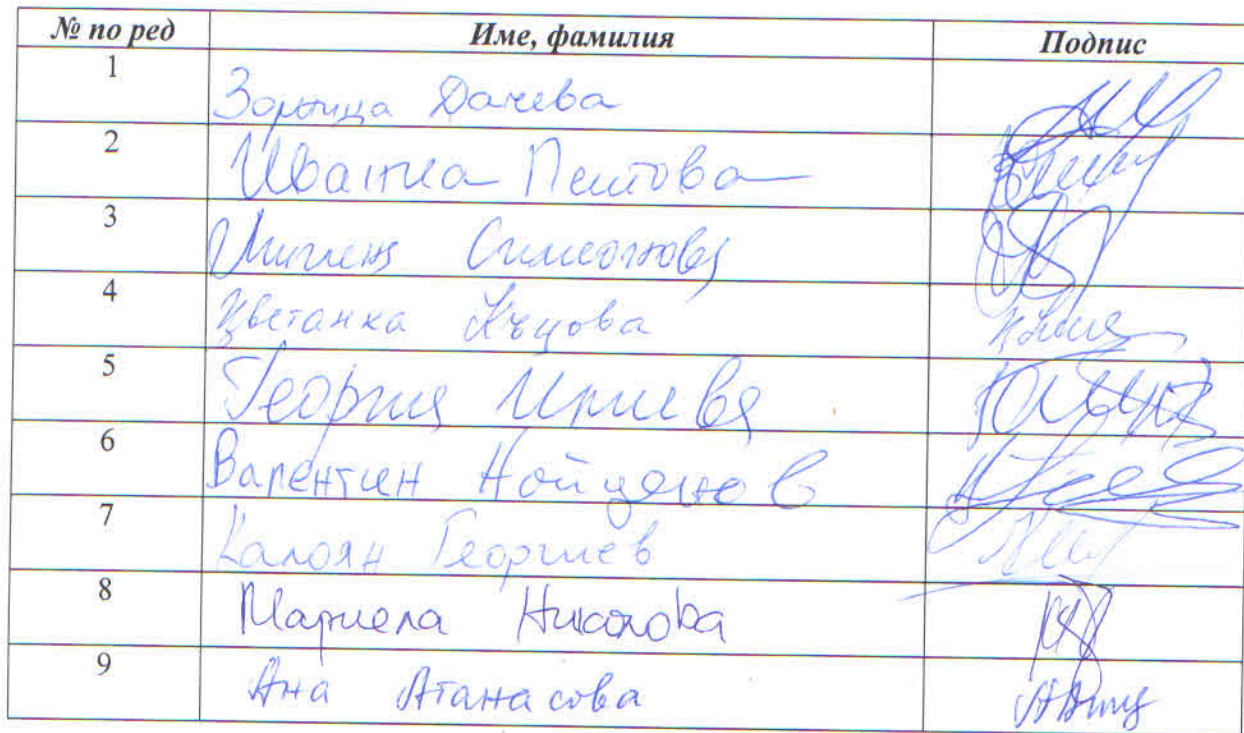 № по ред Име, фамилия Подпис
1 Зорница Дачева
2 Иванка Пентова
3 Миглена Симеонова
4 Цветанка Къцова
5 Георгия Илиева
6 Валентин Нойценов
7 Калоян Георгиев
8 Мариела Николова
9 Ана Атанасова